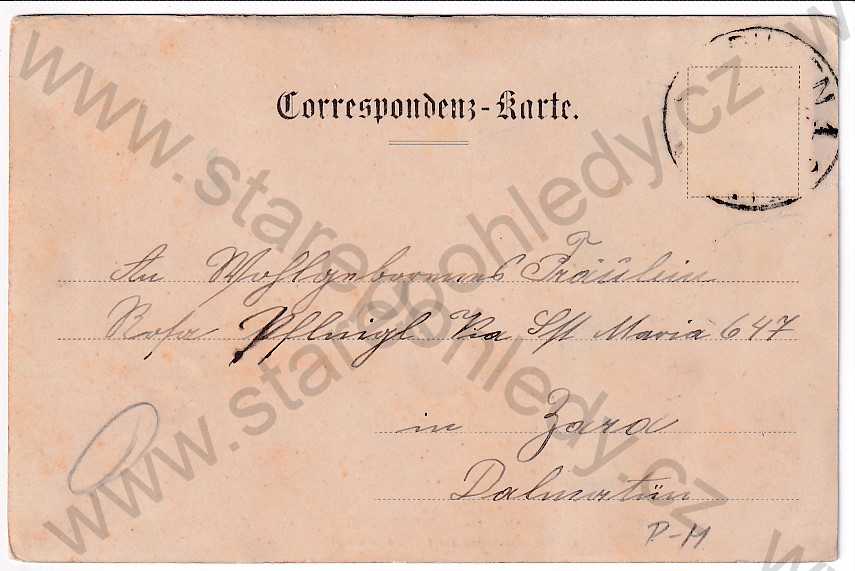 Correspondenz-Karte.
An Wohlgeborenes Fräulein
Rosa Pfluigl Via S/t Maria 647
in Zara
Dalmatün
P-M
www.starepohledy.cz
www.starepohledy.cz